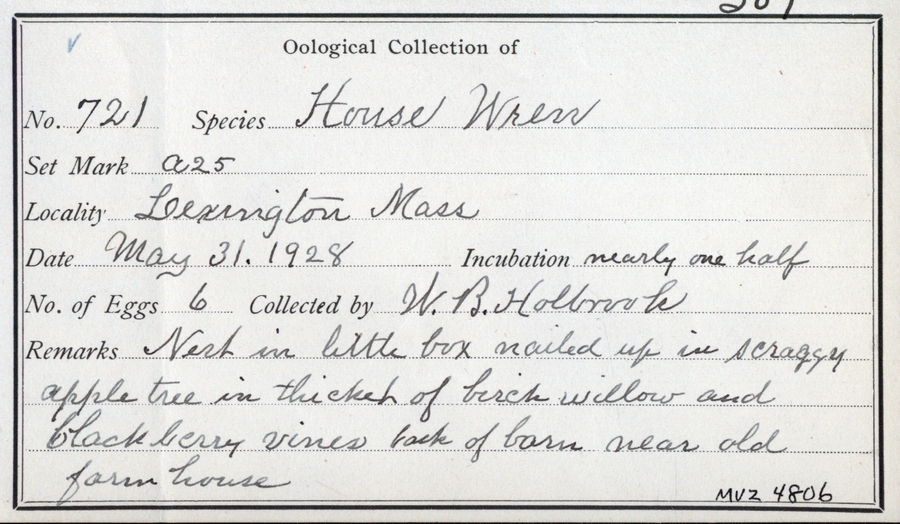 Oological Collection of
No. 721 Species House Wren
Set Mark a25
Locality Lexington Mass
Date May 31. 1928 Incubation nearly one half
No. of Eggs 6 Collected by W. B. Holbrook
Remarks Nest in little box nailed up in scraggy
apple tree in thicket of birch willow and
blackberry vines back of barn near old
farm house
MVZ 4806